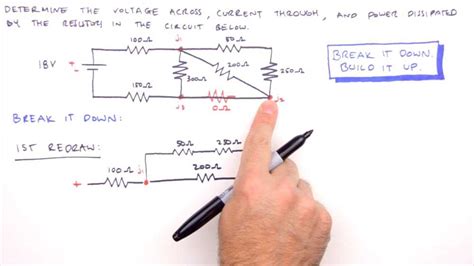 DETERMINE THE VOLTAGE ACROSS, CURRENT THROUGH, AND POWER DISSIPATED
BY THE RESISTORS IN THE CIRCUIT BELOW.
100Ω J1 50Ω
18V + - 300Ω 200Ω 250Ω
150Ω J3 0Ω J2
BREAK IT DOWN.
BUILD IT UP.
BREAK IT DOWN:
1ST REDRAW:
50Ω 250Ω
+ 100Ω J1 200Ω